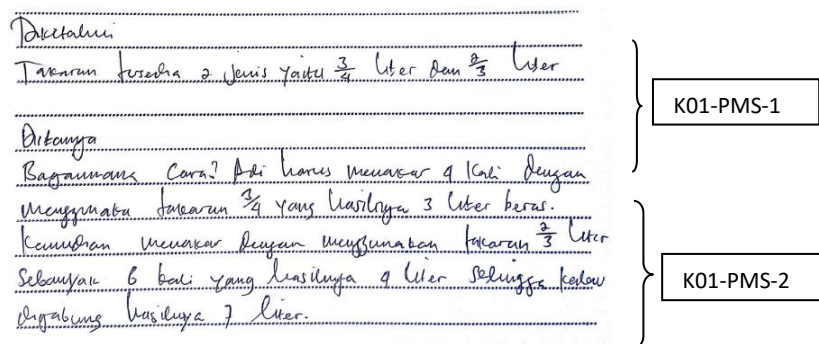 Diketahui
Takaran tersedia 2 jenis yaitu 3/4 liter dan 2/3 liter
K01-PMS-1
Ditanya
Bagaimana Cara? Adi harus menakar 4 kali dengan
menggunaka takaran 3/4 yang hasilnya 3 liter beras.
Kemudian menakar dengan menggunakan takaran 2/3 liter
Sebanyak 6 kali yang hasilnya 4 liter sehingga kalau
digabung hasilnya 7 liter.
K01-PMS-2